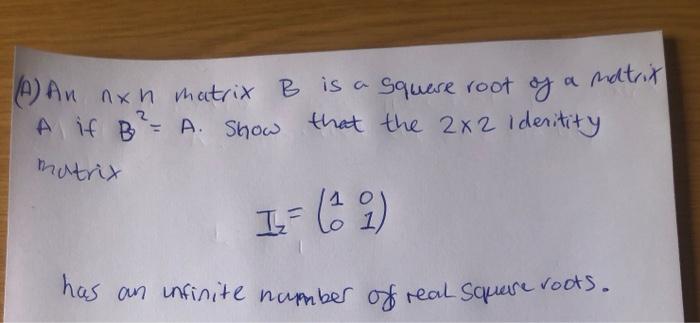 (A) An nxn matrix B is a square root of a matrix
A if B² = A. Show that the 2x2 idenitity
matrix
I₂ = (1 0
0 1)
has an infinite number of real square roots.